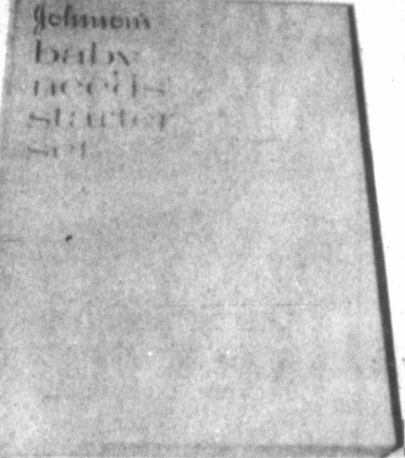 Johnson's
baby
needs
starter
set